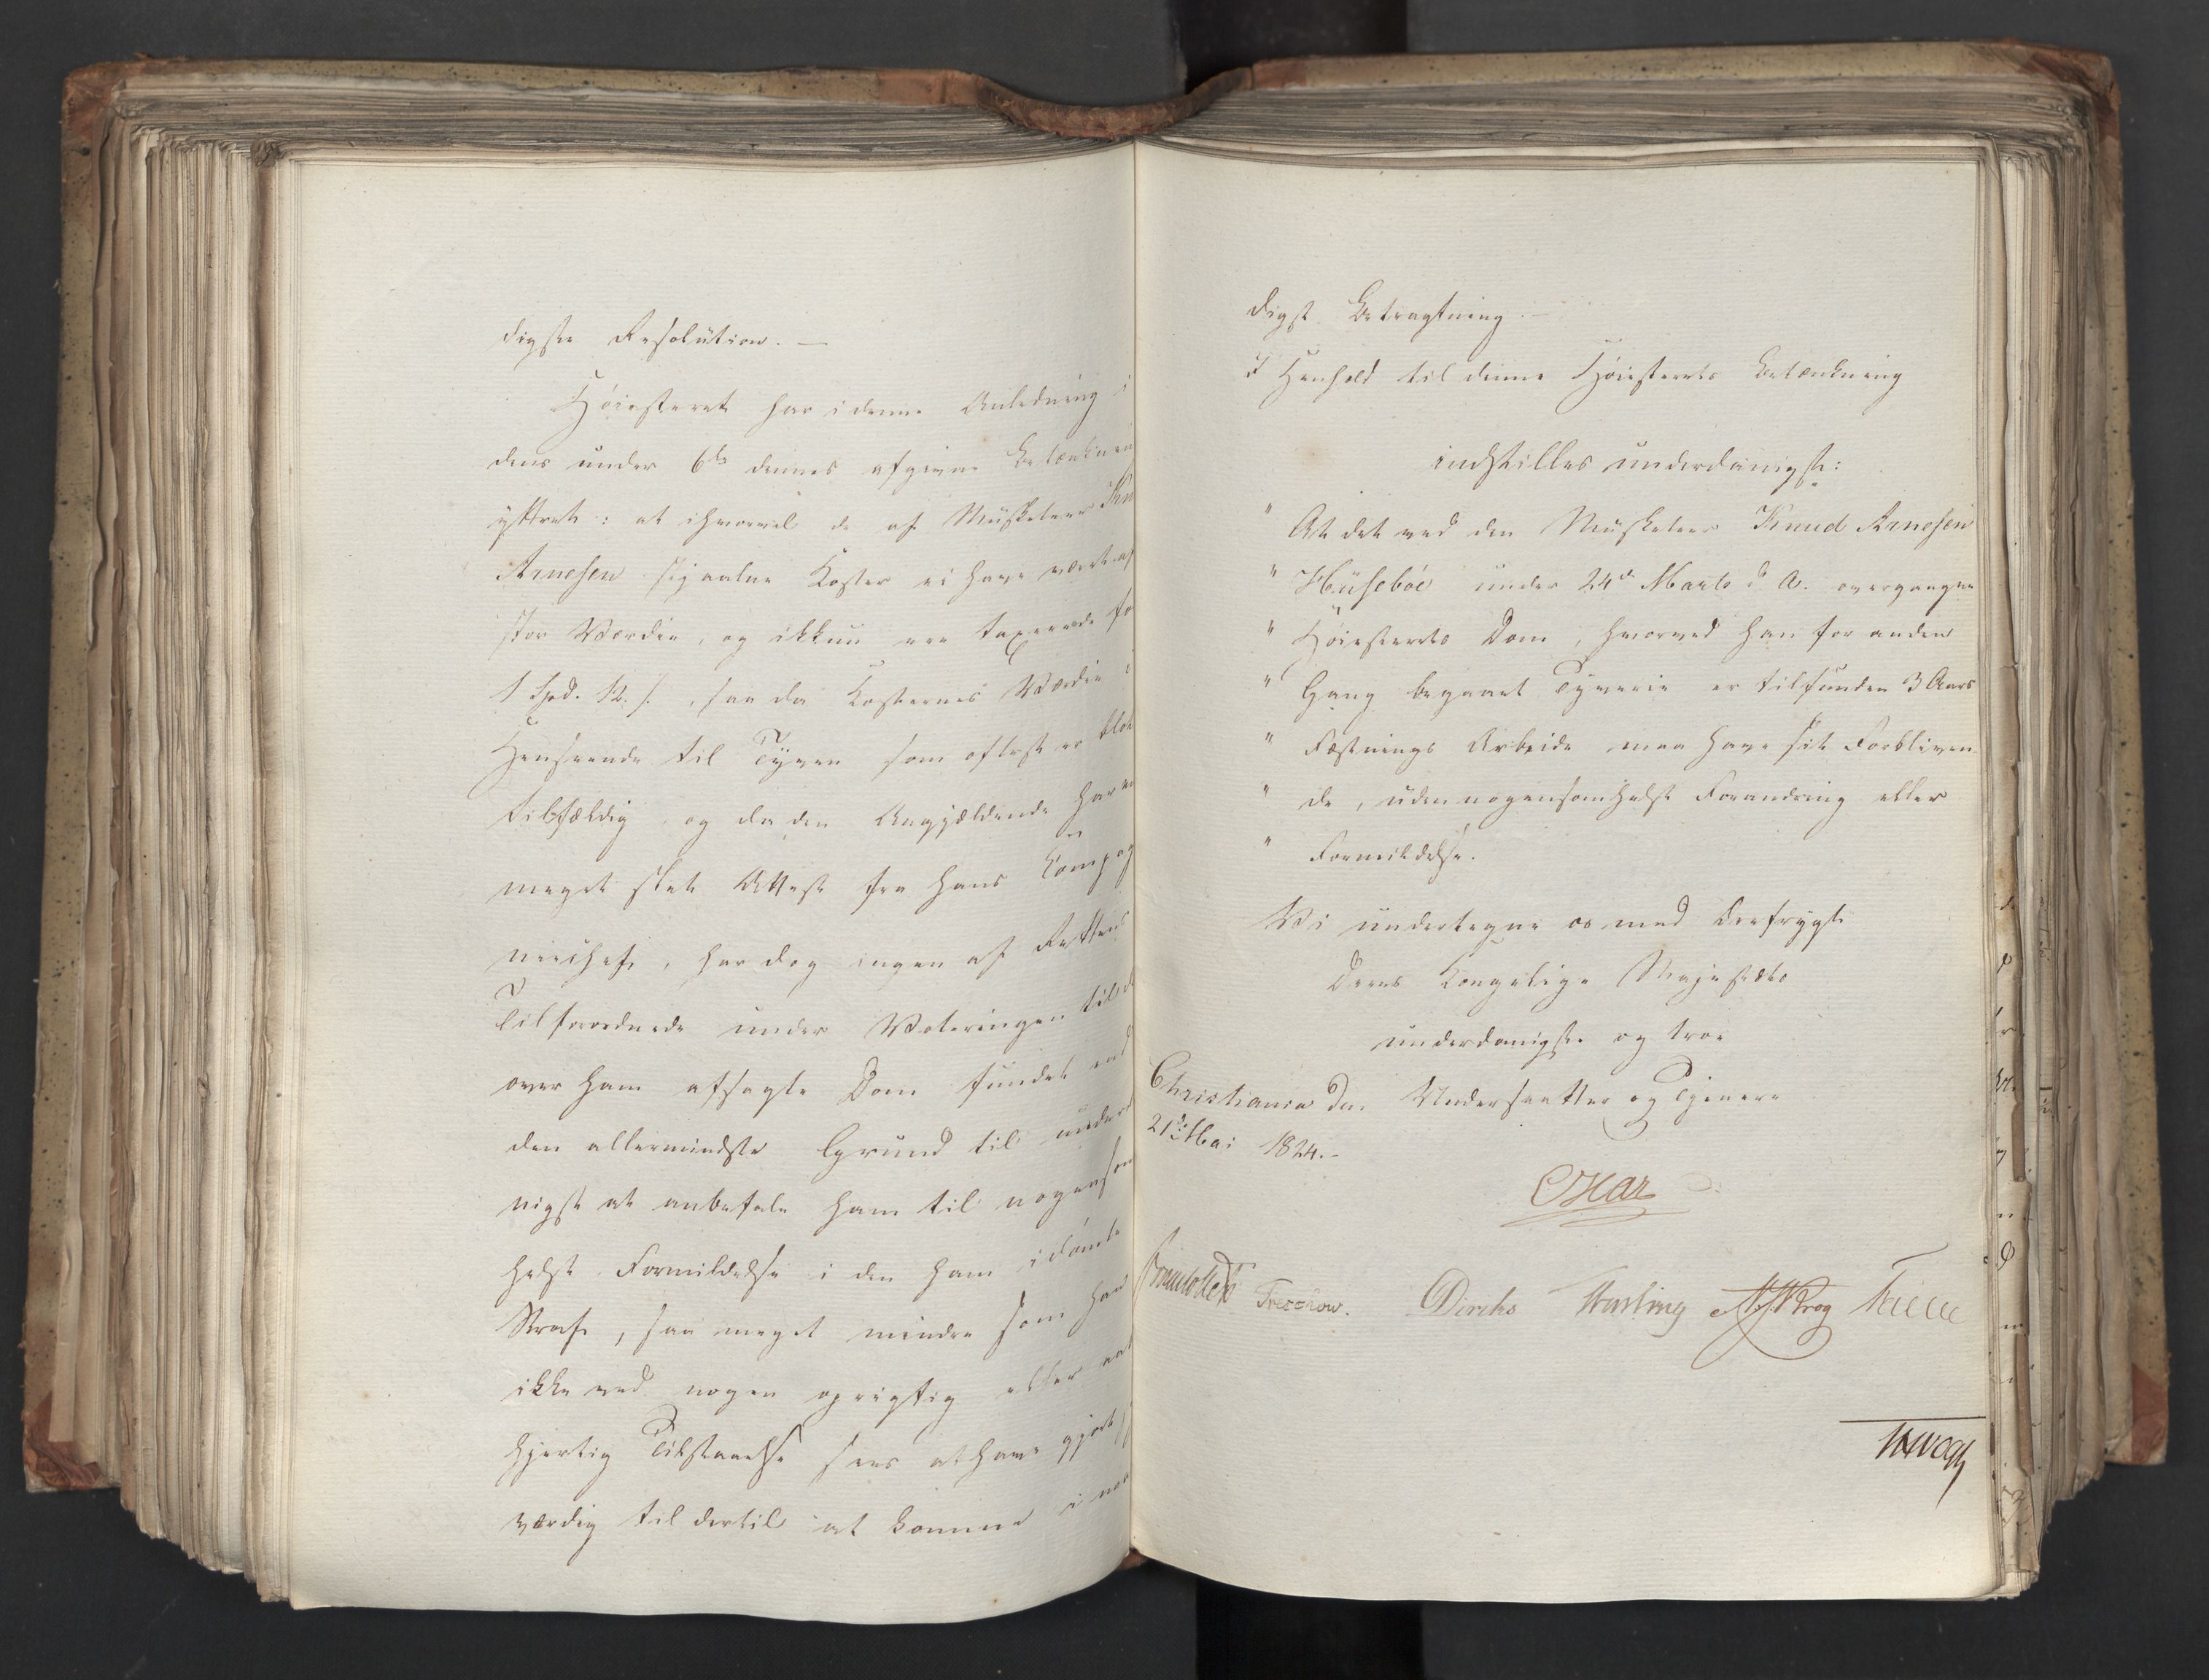 digste Resolution. —
Høiesteret har i denne Anledning i
dens under 6te dennes afgivne Betænknin
yttret: at ihvorvel de af Musketeer Knu
Arnesen stjaalne Koster ei have været af
stor Værdie, og ikkun ere taxerede fo
1 Spd. 12 s., saa da Kosternes Værdie i
Henseende til Tyven som oftest er blot
tilfældig, og da den Angjældende har en
meget slet Attest fra hans Compag
niechef, har dog ingen af Rettens
Tilforordnede under Voteringen til d
over ham afsagte Dom fundet end
den allermindste Grund til underd
nigst at anbefale ham til nogensom
helst Formildelse i den ham idømte
Straf, saa meget mindre som han
ikke ved nogen oprigtig eller aab
hjertig Tilstaaelse sees at have gjort s
værdig til dertil at komme i naa
digst Betragtning. —
I Henhold til denne Høiesterets Betænkning
indstilles underdanigst:
" At det ved den Musketeer Knud Arnesen
" Husebøe under 24de Marts d. A. overgangne
" Høiesterets Dom, hvorved han for anden
" Gang begaaet Tyverie er tilfunden 3 Aars
" Fæstnings Arbeide maa have sit Forbliven
" de, uden nogensomhelst Forandring eller
" Formildelse.
Vi undertegne os med dybfrygt
Deres Kongelige Majestæts
underdanigste og troe
Christiania den Undersaatter og Tjenere
21de Mai 1824. —
Oscar
Treschow. Diriks Krog